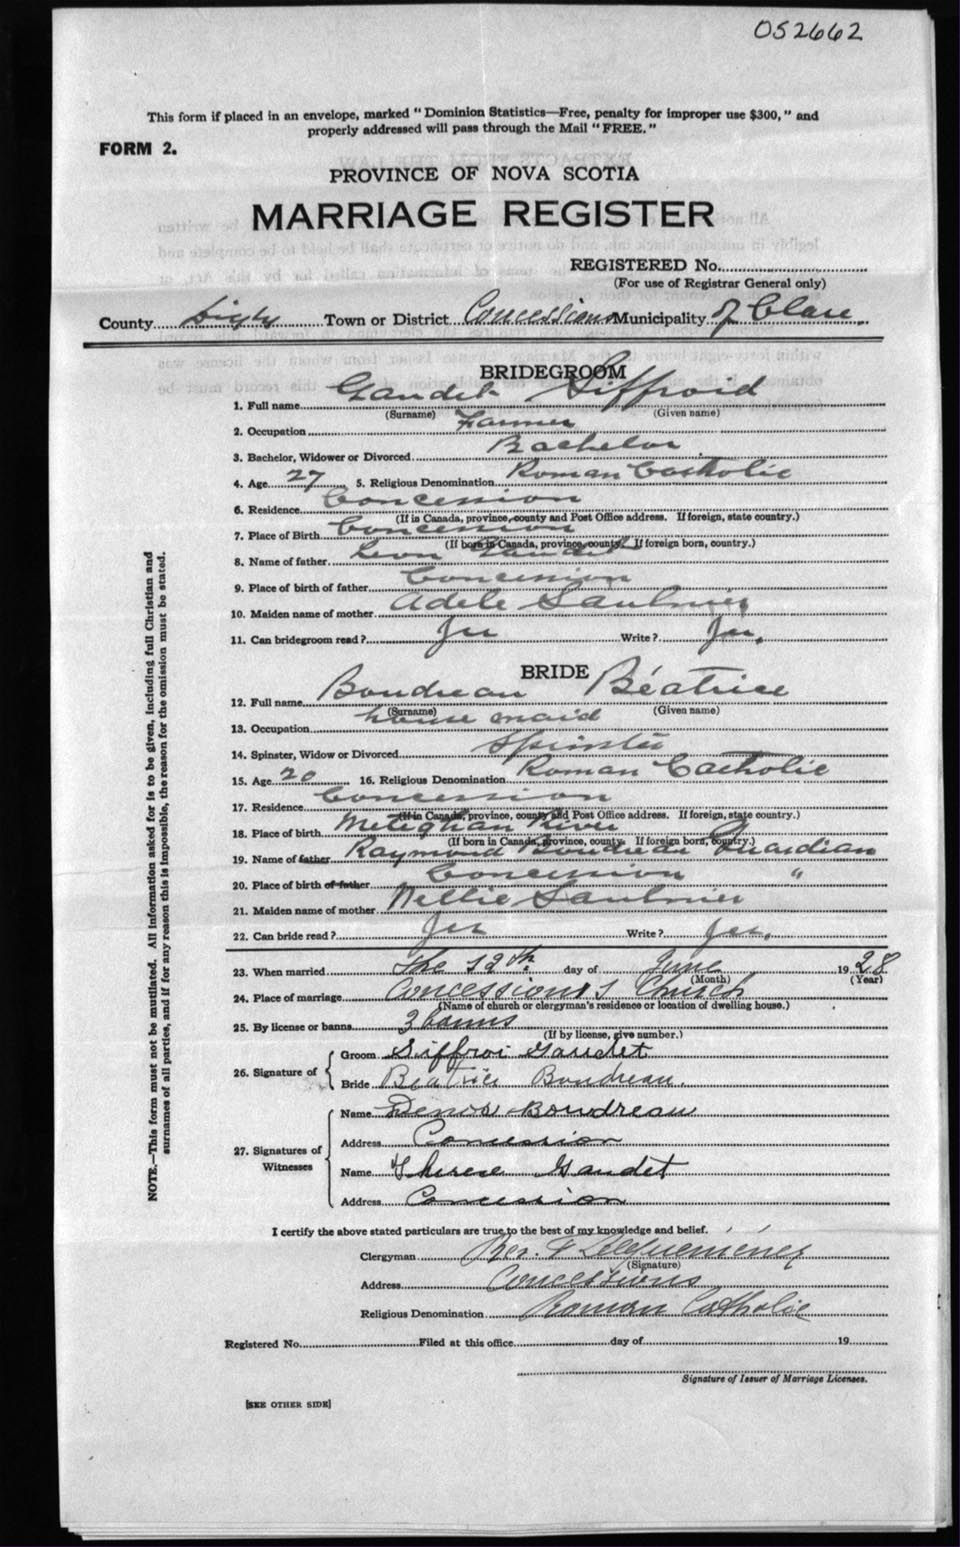 052662
This form if placed in an envelope, marked " Dominion Statistics—Free, penalty for improper use $300, " and
properly addressed will pass through the Mail " FREE. "
FORM 2.
PROVINCE OF NOVA SCOTIA
MARRIAGE REGISTER
REGISTERED No.
(For use of Registrar General only)
County Digby Town or District Concessions Municipality of Clare.
BRIDEGROOM
1. Full name Gaudet Siffroid
(Surname) (Given name)
2. Occupation Farmer
3. Bachelor, Widower or Divorced Bachelor
4. Age 27 5. Religious Denomination Roman Catholic
6. Residence Concession
(If in Canada, province, county and Post Office address. If foreign, state country.)
7. Place of Birth Concession
(If born in Canada, province, county. If foreign born, country.)
8. Name of father Leon Gaudet
9. Place of birth of father Concession
10. Maiden name of mother Adele Saulnier
11. Can bridegroom read? Yes Write? Yes.
BRIDE
12. Full name Boudreau Béatrice
(Surname) (Given name)
13. Occupation house maid
14. Spinster, Widow or Divorced Spinster
15. Age 20 16. Religious Denomination Roman Catholic
17. Residence Concession
(If in Canada, province, county and Post Office address. If foreign, state country.)
18. Place of birth Meteghan River
(If born in Canada, province, county. If foreign born, country.)
19. Name of father Raymond Boudreau Guardian
20. Place of birth of father Concession "
21. Maiden name of mother Nellie Saulnier
22. Can bride read? Yes Write? Yes.
23. When married the 12th. day of June 1928
(Month) (Year)
24. Place of marriage Concessions Church
(Name of church or clergyman's residence or location of dwelling house.)
25. By license or banns 3 banns
(If by license, give number.)
26. Signature of
Groom Siffroi Gaudet
Bride Beatrice Boudreau.
27. Signatures of Witnesses
Name Denis Boudreau
Address Concession
Name Therese Gaudet
Address Concession
I certify the above stated particulars are true to the best of my knowledge and belief.
Clergyman Rev.
(Signature)
Address Concessions
Religious Denomination Roman Catholic
Registered No. Filed at this office day of 19
Signature of Issuer of Marriage Licenses.
[SEE OTHER SIDE]
NOTE.—This form must not be mutilated. All information asked for is to be given, including full Christian and
surnames of all parties, and if for any reason this is impossible, the reason for the omission must be stated.